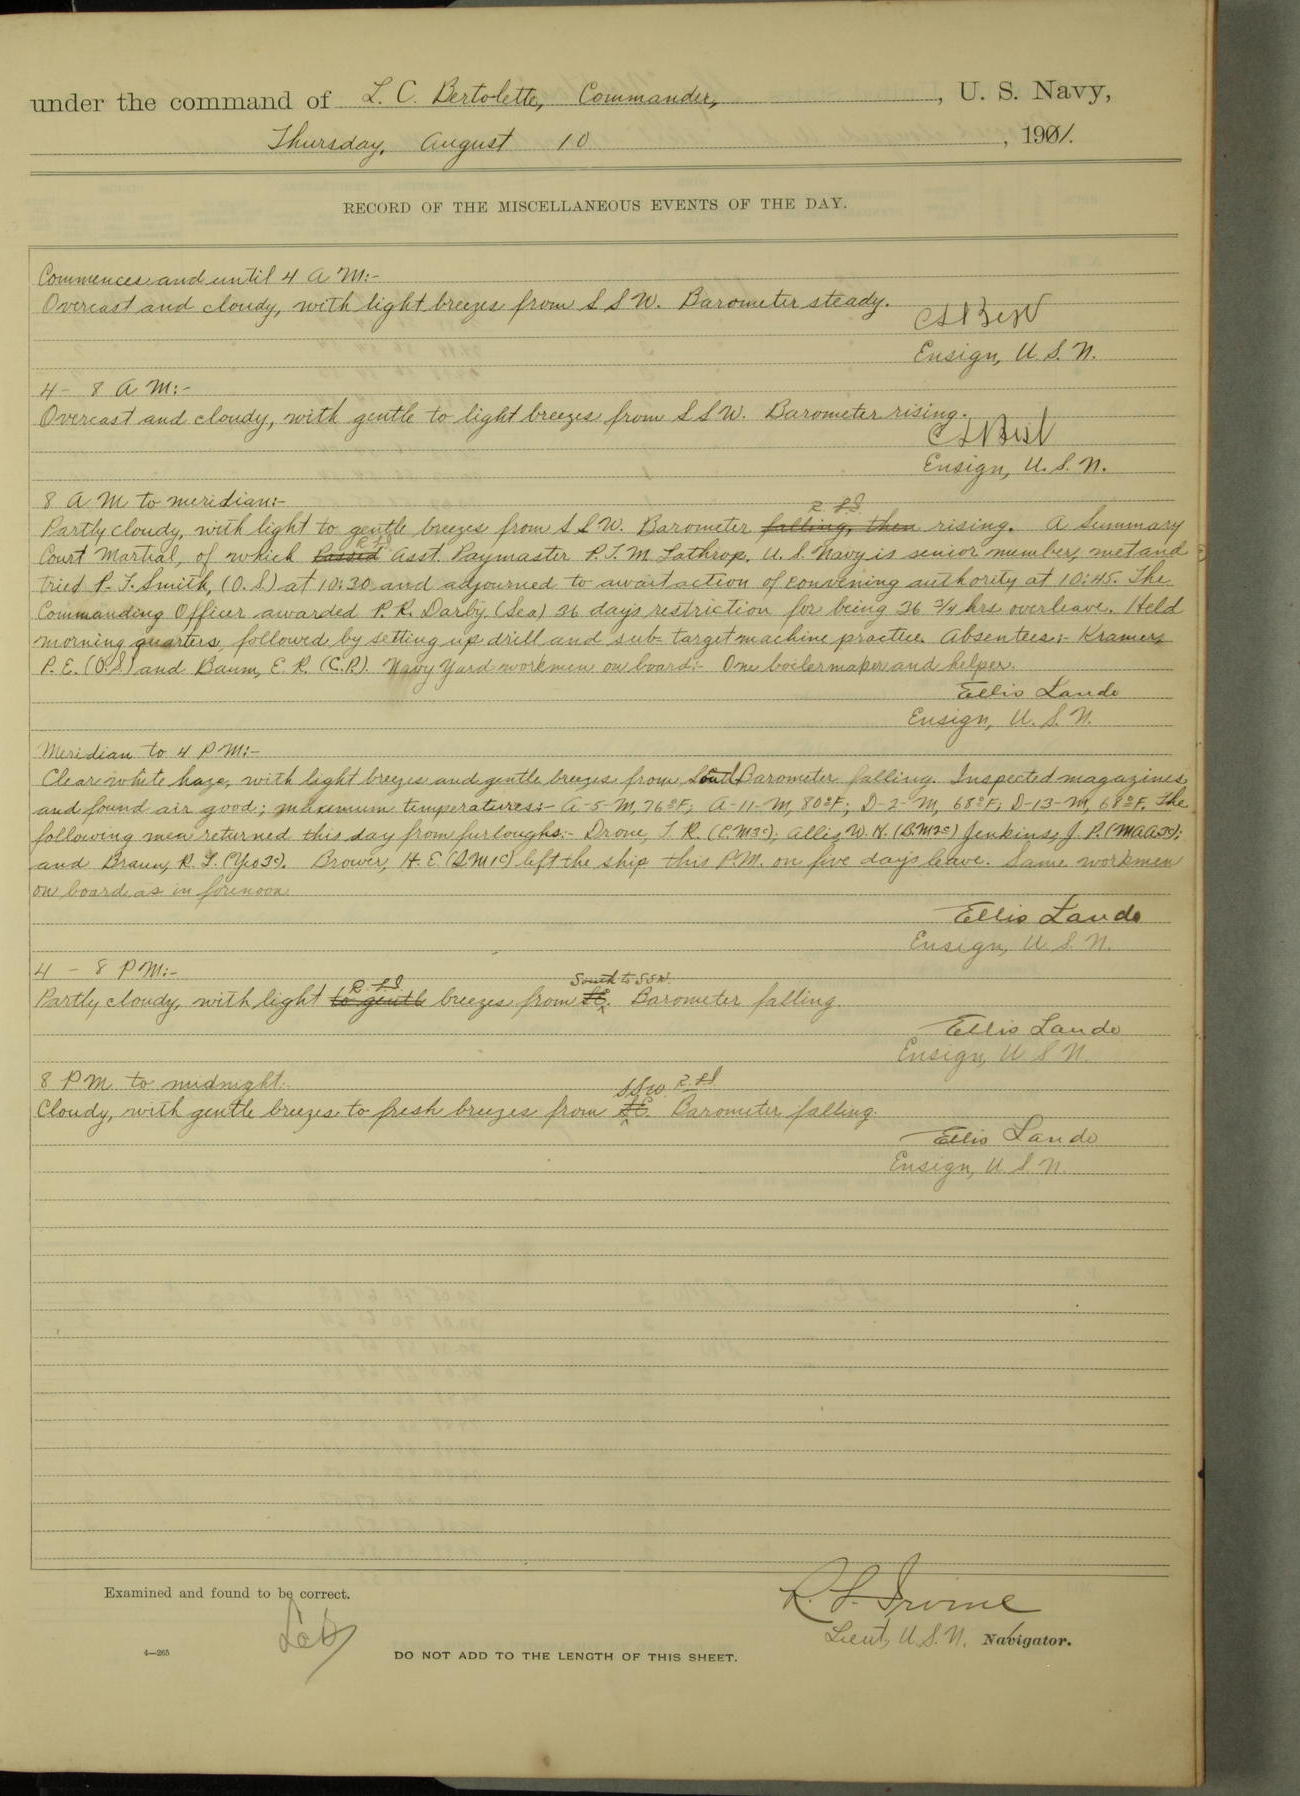 under the command of L. C. Bertolette, Commander, , U. S. Navy,
Thursday, August 10 , 1901.
RECORD OF THE MISCELLANEOUS EVENTS OF THE DAY.
Commences and until 4 A M:-
Overcast and cloudy, with light breezes from S S W. Barometer steady.
Ensign, U. S. N.
4 - 8 A M:-
Overcast and cloudy, with gentle to light breezes from S S W. Barometer rising.
Ensign, U. S. N.
8 A M to meridian:-
Partly cloudy, with light to gentle breezes from S S W. Barometer falling, then rising. A Summary
Court Martial, of which Passed Asst. Paymaster P. T. M. Lathrop, U. S. Navy is senior member, met and
tried P. T. Smith, (O. S.) at 10:30 and adjourned to await action of convening authority at 10:45. The
Commanding Officer awarded P. R. Darby (Sea) 26 days restriction for being 26 3/4 hrs overleave. Held
morning quarters, followed by setting up drill and sub-target machine practice. Absentees:- Kramer,
P. E. (O.S) and Baum, E. R. (C.P.) Navy Yard workmen on board:- One boilermaker and helper.
Ellis Lando
Ensign, U. S. N.
Meridian to 4 P M:-
Clear white haze, with light breezes and gentle breezes from South Barometer falling. Inspected magazines
and found air good; maximum temperatures:- A-5-M, 76°F; A-11-M, 80°F; D-2-M, 68°F; D-13-M, 68°F. The
following men returned this day from furloughs:- Drone, T. R. (C.M3c); Allis W. H. (BM2c) Jenkins, J. P. (MAA3c);
and Braun, R. G. (Yeo3c). Brower, H. E. (SM1c) left the ship this P.M. on five days leave. Same workmen
on board as in forenoon.
Ellis Lando
Ensign, U. S. N.
4 - 8 P M:-
South to SSW.
Partly cloudy, with light to gentle breezes from SE. Barometer falling.
Ellis Lando
Ensign, U S N.
8 P M to midnight.
SSW.
Cloudy, with gentle breezes to fresh breezes from SE. Barometer falling.
Ellis Lando
Ensign, U S N.
Examined and found to be correct.
LCB
R. S. Irvine
Lieut, U. S. N. Navigator.
4—265
DO NOT ADD TO THE LENGTH OF THIS SHEET.